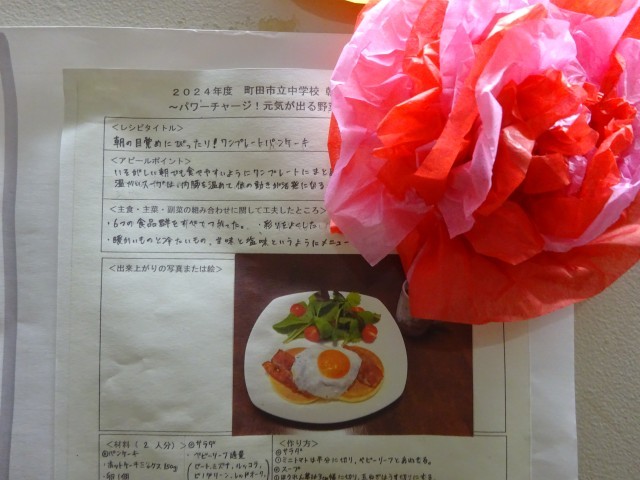 ２０２４年度　町田市立中学校
～パワーチャージ！元気が出る野菜
＜レシピタイトル＞
朝の目覚めにぴったり！ワンプレートパンケーキ
＜アピールポイント＞
いそがしい朝でも食べやすいようにワンプレートにまと
温かいスープは内臓を温めて体の動きが活発になる
＜主食・主菜・副菜の組み合わせに関して工夫したところ＞
・6つの食品群をすべてつかった。・彩りをよくした
・暖かいものと冷たいもの、甘味と塩味というようなメニュー
＜出来上がりの写真または絵＞
＜材料（２人分）＞ ④サラダ
④パンケーキ ・ベビーリーフ 適量
・ホットケーキミックス 150g (ピート、ミズナ、ルッコラ、
・卵 1個
＜作り方＞
④サラダ
①ミニトマトは半分に切り、ベビーリーフとあわせる。
④スープ